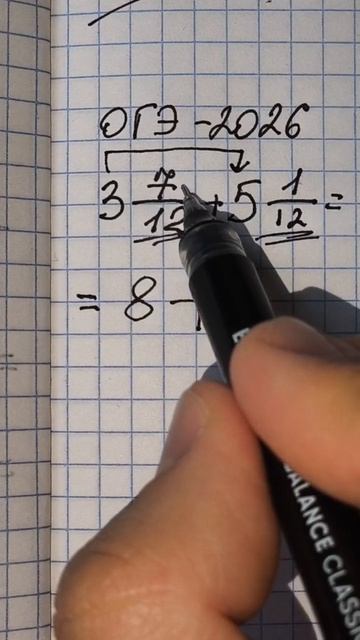 ОГЭ-2026
3 7/12 + 5 1/12 =
= 8
BALANCE CLASSI